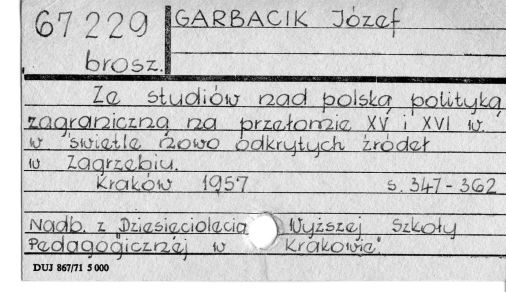 67229
GARBACIK Józef
brosz.
Ze studiów nad polską polityką
zagraniczną na przełomie XV i XVI w.
w świetle nowo odkrytych źródeł
w Zagrzebiu.
Kraków 1957 s. 347-362
Nadb. z "Dziesięciolecia Wyższej Szkoły
Pedagogicznej w Krakowie".
DUJ 867/71 5 000